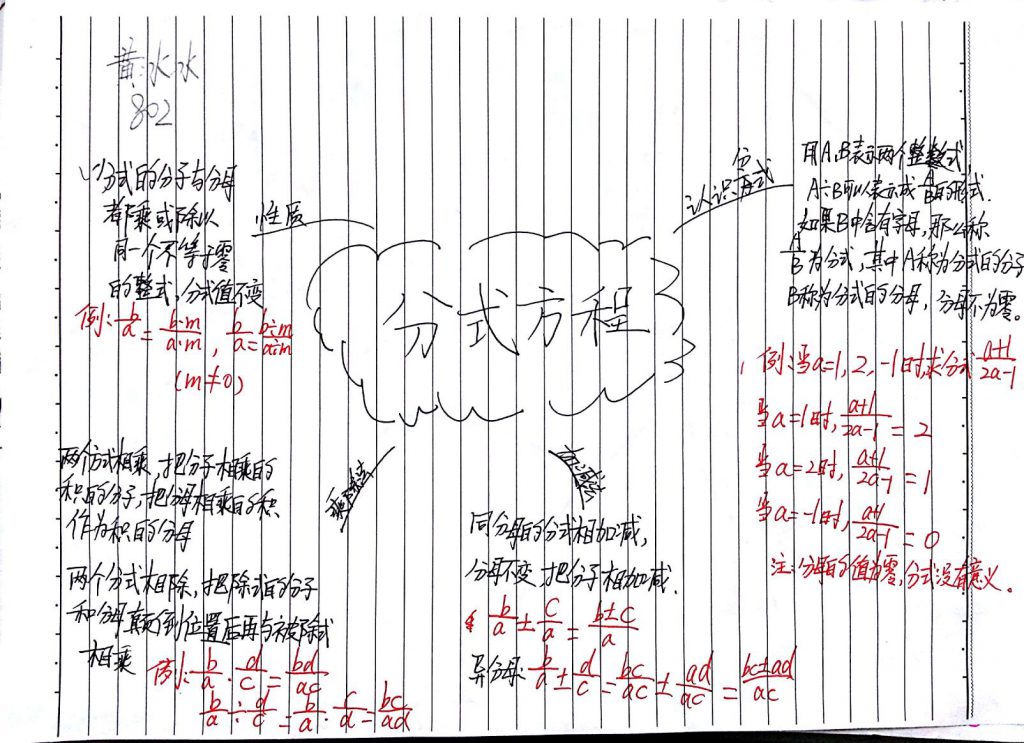 黄水水
802
分式方程
性质
分式的分子与分母
都乘或除以
同一个不等于零
的整式,分式值不变
例:b/a = b·m/a·m , b/a = b÷m/a÷m
(m≠0)
认识分式
用A,B表示两个整式,
A÷B可以表示成A/B的形式.
如果B中含有字母,那么称
A/B为分式,其中A称为分式的分子
B称为分式的分母,分母不为零。
例:当a=1,2,-1时,求分式 a+1/2a-1
当a=1时, a+1/2a-1 = 2
当a=2时, a+1/2a-1 = 1
当a=-1时, a+1/2a-1 = 0
注:分母的值为零,分式没有意义。
乘除法
两个分式相乘,把分子相乘的
积的分子,把分母相乘的积
作为积的分母
两个分式相除,把除式的分子
和分母颠倒位置后再与被除式
相乘
例:b/a · d/c = bd/ac
b/a ÷ d/c = b/a · c/d = bc/ad
加减法
同分母的分式相加减,
分母不变,把分子相加减.
b/a ± c/a = b±c/a
异分母: b/a ± d/c = bc/ac ± ad/ac = bc±ad/ac